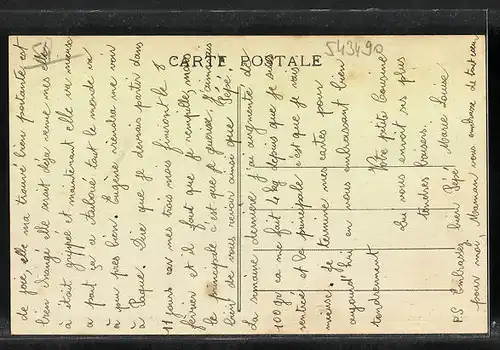 CARTE POSTALE
543490
de joie, elle ma trouvé bien portante et
bien changé elle serait déjà venue mes elle
à était grippé et maintenant elle va mieux
a part ça a Taborie tout le monde va
à peu près bien. Eugène viendra me voir
à Pâque. Dire que je devrais partir dans
11 jours car mes trois mois finiront le 8
février et il faut que je rempile, mais
le principale c'est que je guerisse, J'aimerais
bien de vous revoir ainsi que Pépé.
La semaine dernière j'ai augmenté de
100 gr ca me fait 4 kg depuis que je suis
rentré et la principale c'est que je vais
mieux. Je termine mes cartes pour
aujourd'hui en vous embrassant bien
tendrement
Votre petite cousine
qui vous envoit ses plus
tendres baisers.
Marie Louise
P.S Embrassez bien Pépé
pour moi. Maman vous embrasse de tout cœur